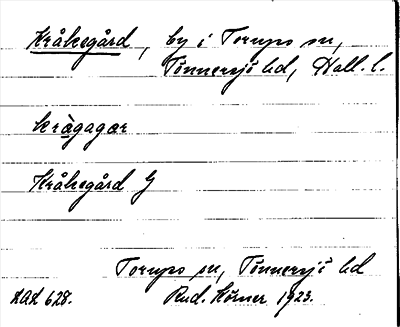 Kråkegård, by i Torups sn,
Tönnersjö hd, Hall. l.
kràgagɑr
Kråkegård G
Torups sn, Tönnersjö hd
Rud. Körner 1923.